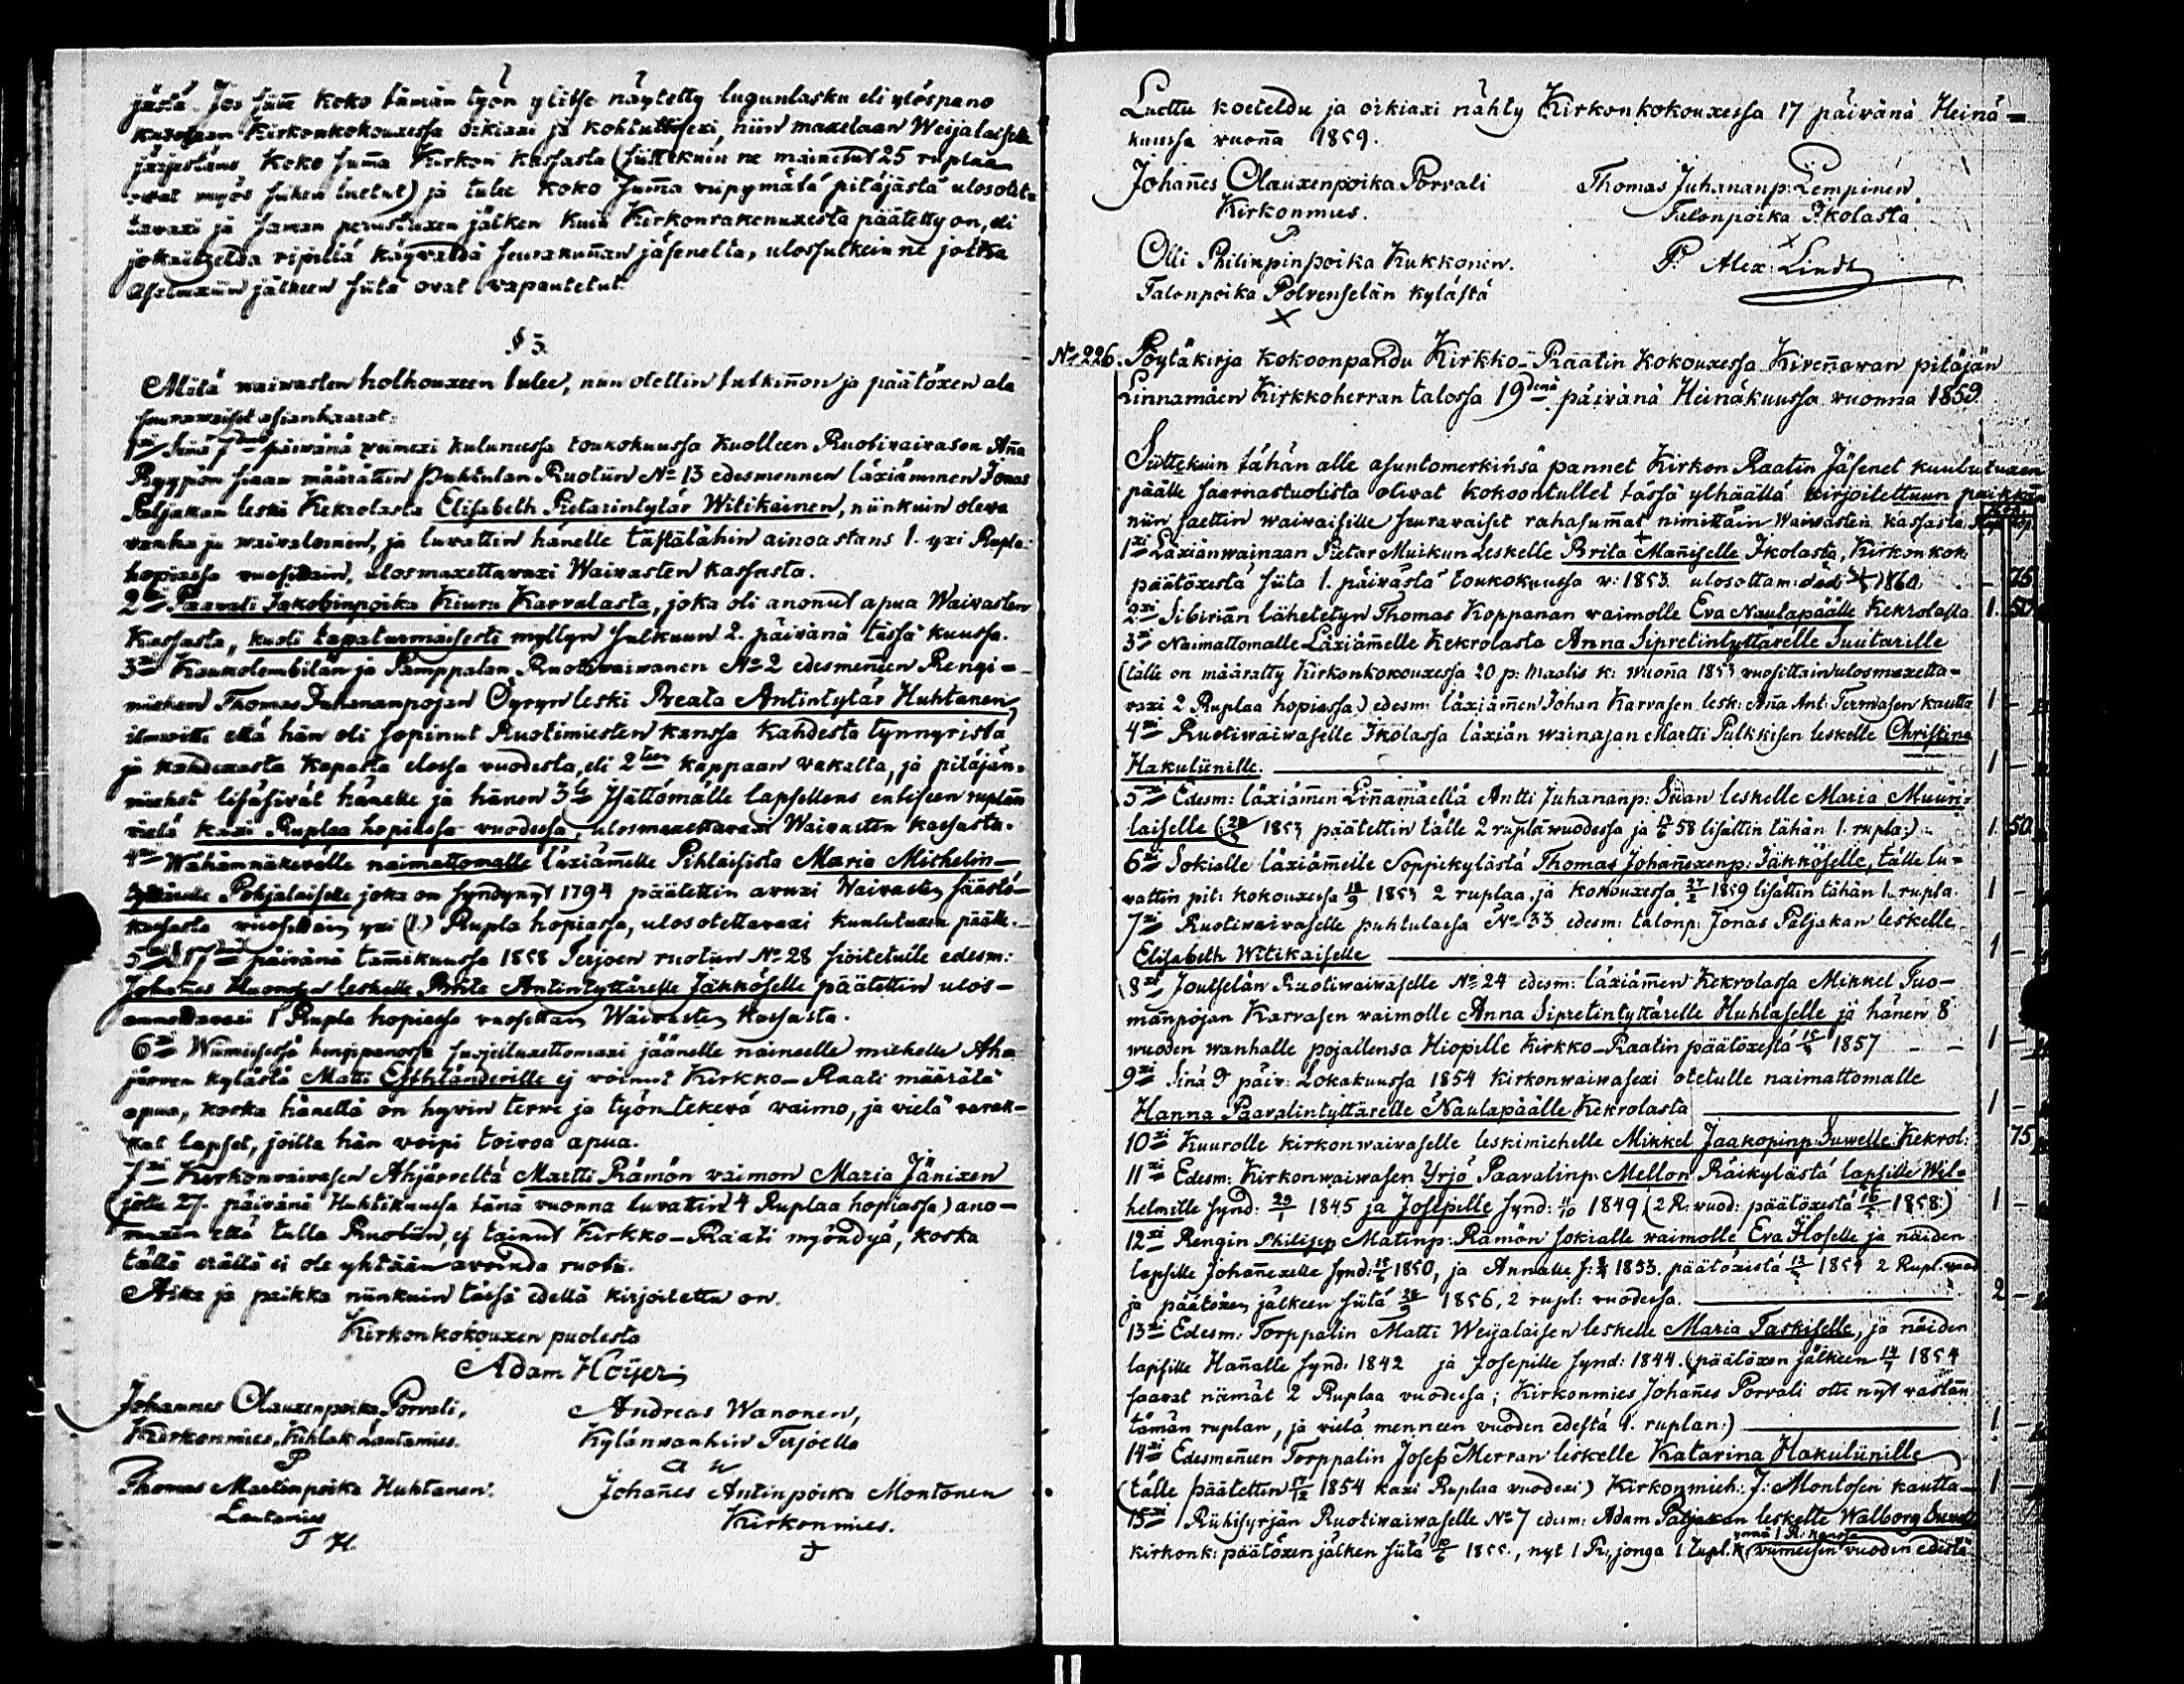 jästä. Jos sitte koko tämän työn ylitse näytetty lugunlasku eli ylöspano
Kirkonkokouxessa oikiaxi ja kohtullisexi, niin maxetaan Weijalaiselle
koko summa Kirkon kassasta (siittekuin ne mainetut 25 ruplaa
ovat myös siihen luetut) ja tulee koko summa viipymätä pitäjästä ulosotet-
tavaxi ja saman perustuxen jälken kuin Kirkonrakenuxesta päätetty on, eli
jokaitzelda ripillä käyvaldä seurakuñan jäsenelta, ulossulkein ne jotka
Asetuxiin jälkeen siitä ovat vapautetut.
§ 3.
Mitä waivasten holhouxeen tulee, niin otettin tutkiñon ja päätöxen ala
seurawaiset asianhaarat:
1xi Sinä 7 päivänä viimexi kuluneessa toukokuussa kuolleen Ruotivaivasen Aña
Ryypön siaan määrättin Puhtulan Ruotiin No 13 edesmennen läxiämmen Jonas
Paljakan leski Kekrolasta Elisabeth Pietarintytär Witikainen, niinkuin oleva
vanha ja waivaloinen, ja luvattin hänelle tästälähin ainoastans 1. yxi Rupla
hopiassa vuosittain, ulosmaxettavaxi Waivasten kassasta.
2xi Paavali Jakobinpoika Kiuru Karvalasta, joka oli anonut apua Waivasten
Kassasta, kuoli tapaturmaisesti myllyn sulkuun 2. päivänä tässä kuussa.
3xi Kaukolembilän ja Pamppalan Ruotivaivanen No 2 edesmeñen Rengi-
miehen Thomas Juhananpojan Öyryn leski Beata Antintytär Huhtanen,
ilmoitti että hän oli sopinut Ruotimiesten kanssa kahdesta tynnyristä
ja kahdexasta kapasta elossa vuodesta, eli 2 kappaan vakalta, ja pitäjän-
miehet lisäsivät hänelle ja hänen 3 Isättömälle lapsellens entiseen ruplan
vielä kaxi Ruplaa hopiassa vuodessa, ulosmaxettavaxi Waivasten kassasta.
4xi Wähännäkevälle naimattomalle läxiämelle Pihlaisista Maria Michelin-
tyttärelle Pohjalaiselle joka on syndynyt 1794 päätettin avuxi Waivasten säästö-
kassasta vuosittain yxi (1.) Rupla hopiassa, ulosotettavaxi kuulutuxen päälle.
5xi 17 päivänä tamikuussa 1858 Terjoen ruotiin No 28 sioitetulle edesm:
Johañes leskelle Brita Antintyttärelle Jäkköselle päätettin ulos-
annettavaxi 1 Rupla hopiassa vuosittain Waivasten kassasta.
6xi Wiimeisessä hengipanossa suojeiluxettomaxi jäänelle naineelle miehelle Ahä
järven kylästä Matti Esthländerille ej voinut Kirkko-Raati määrätä
apua, koska hänellä on hyvin terve ja työn tekevä vaimo, ja vielä varak-
kat lapset, joilta hän voipi toivoa apua.
7xi Kirkonvaivasen Ahjärveltä Martti Rämön vaimon Maria Jänixen
(jolle 27. päivänä Huhtikuussa tänä vuonna luvatin 4 Ruplaa hopiassa) ano-
muxen että tulla Ruotiin, ej tainut Kirkko-Raati myöndyä, koska
tällä erällä ei ole yhtään avoinda ruotia.
Aika ja paikka niinkuin tässä edellä kirjoitettu on.
Kirkonkokouxen puolesta
Adam Höijer
Johannes Olauxenpoika Porvali,
Kirkonmies, Kihlak: Lautamies.
P
Andreas Wanonen,
Kylänvanhin Terjoella
A W
Thomas Martinpoika Huhtanen.
Lautamies
T H.
Johañes Antinpoika Montonen
Kirkonmies.
Luettu koeteldu ja oikiaxi nähty Kirkonkokouxessa 17 päivänä Heinä-
kuussa vuoña 1859.
Johañes Olauxenpoika Porvali
Kirkonmies.
P
Thomas Juhananp: Lempinen
Talonpoika Ikolasta
X
Olli Philippinpoika Kukkonen.
Talonpoika Polvenselän kylästä
X
P. Alex: Lindh
No 226. Pöytäkirja kokoonpandu Kirkko-Raatin kokouxessa Kiveñavan pitäjän
Linnamäen Kirkkoherran talossa 19denä päivänä Heinäkuussa vuonna 1859.
Siittekuin tähän alle asuntomerkinsä pannet Kirkon Raatin Jäsenet kuulutuxen
päälle saarnastuolista olivat kokoontullet tässä ylhäällä kirjoitettuun paikkan
niin saettin waivaisille seuravaiset rahasumat nimittäin Waivasten kassasta
1xi Läxiänwainaan Pietar Muikun Leskelle Brita Mañiselle Ikolasta, Kirkonkok:
päätöxestä siitä 1. päivästä toukokuussa v: 1853. ulosottam: död 1860. – 75
2xi Sibiriañ lähetetyn Thomas Koppanan vaimolle Eva Naulapäälle Kekrolasta 1. 50
3xi Naimattomalle Läxiämelle Kekrolasta Anna Sipretintyttärelle Suutarille
(tälle on määrätty Kirkonkokouxessa 20 p: Maalis k: Wuoña 1853 vuosittain ulosmaxetta-
vaxi 2 Ruplaa hopiassa) edesm: läxiämen Johan Karvasen lesk: Aña Ant: Tervasen kautta 1 –
4xi Ruotiwaivaselle Ikolassa läxiän wainajan Martti Pulkkisen leskelle Christina
Hakuliinille. 1 –
5xi Edesm: läxiämen Liñamäellä Antti Juhananp: Siian leskelle Maria Muuri-
laiselle 1853 päätettin tälle 2 ruplaa vuodessa ja 58 lisättin tähän 1. rupla:) 1 50
6xi Sokialle läxiämelle Soppikylästä Thomas Johañexenp: Jäkköselle, tälle lu-
vattin pit: kokouxessa 18/9 1853 2 ruplaa, ja kokouxessa 27/2 1859 lisättin tähän 1. rupla 1 –
7xi Ruotivaivaselle Puhtulassa No 33 edesm: talonp: Jonas Paljakan leskelle
Elisabeth Witikaiselle 1 –
8xi Joutselän Ruotiwaivaselle No 24 edesm: läxiämen Kekrolassa Mikkel Tuo-
manpojan Karvasen vaimolle Anna Sipretintyttärelle Huhtaselle ja hänen 8
vuoden wanhalle pojallensa Hiopille Kirkko-Raatin päätöxestä 1857 – – 1 –
9xi Sinä 9 päiv: Lokakuussa 1854 kirkonwaivasexi otetulle naimattomalle
Hanna Paavalintyttärelle Naulapäälle Kekrolasta 1 –
10xi Kuurolle kirkonwaivaselle leskimiehelle Mikkel Jaakopinp: Suwelle Kekrol: 75
11xi Edesm: Kirkonwaivasen Yrjö Paavalinp: Mellon Räikylästä lapsille Wil-
helmille synd: 29/1 1845 ja Josepille synd: 1849 (2 R: vuod: päätöxestä 1858) 1 –
12xi Rengin Philipp Matinp: Rämön sokialle vaimolle Eva Iloselle ja näiden
lapsille Johañexelle synd: 1850, ja Annalle s: 1853. päätöxestä 1854 2 Rupl. vuod
ja päätöxen jälkeen siitä 28/9 1856, 2 rupl: vuodessa. 2 –
13xi Edesm: Torppalin Matti Weijalaisen leskelle Maria Taskiselle, ja näiden
lapsille Hañalle synd: 1842 ja Josepille synd: 1844. (päätöxen jälkeen 1854
saavat nämät 2 Ruplaa vuodessa; Kirkonmies Johañes Porvali otti nyt vastan
tämän ruplan, ja vielä menneen vuoden edestä 1. ruplan:) 1 –
14xi Edesmeñeen Torppalin Josep Merran leskelle Katarina Hakuliinille
(tälle päätettin 17/12 1854 kaxi Ruplaa vuodexi) Kirkonmieh: J: Montosen kautta – 1 –
15xi Riihisyrjän Ruotiwaivaselle No 7 edesm: Adam Paljakan leskelle Walborg
ynnä 1 R: kanssa
kirkonk: päätöxen jälken siitä 1855., nyt 1 R:, jonga 1 Rupl. K viimeisen vuoden edestä